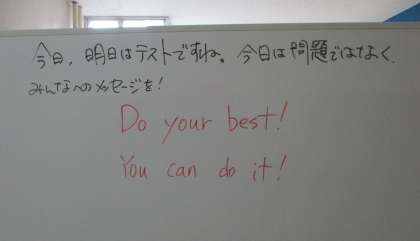 今日，明日はテストですね。今日は問題ではなく，
みんなへのメッセージを！
Do your best!
You can do it!